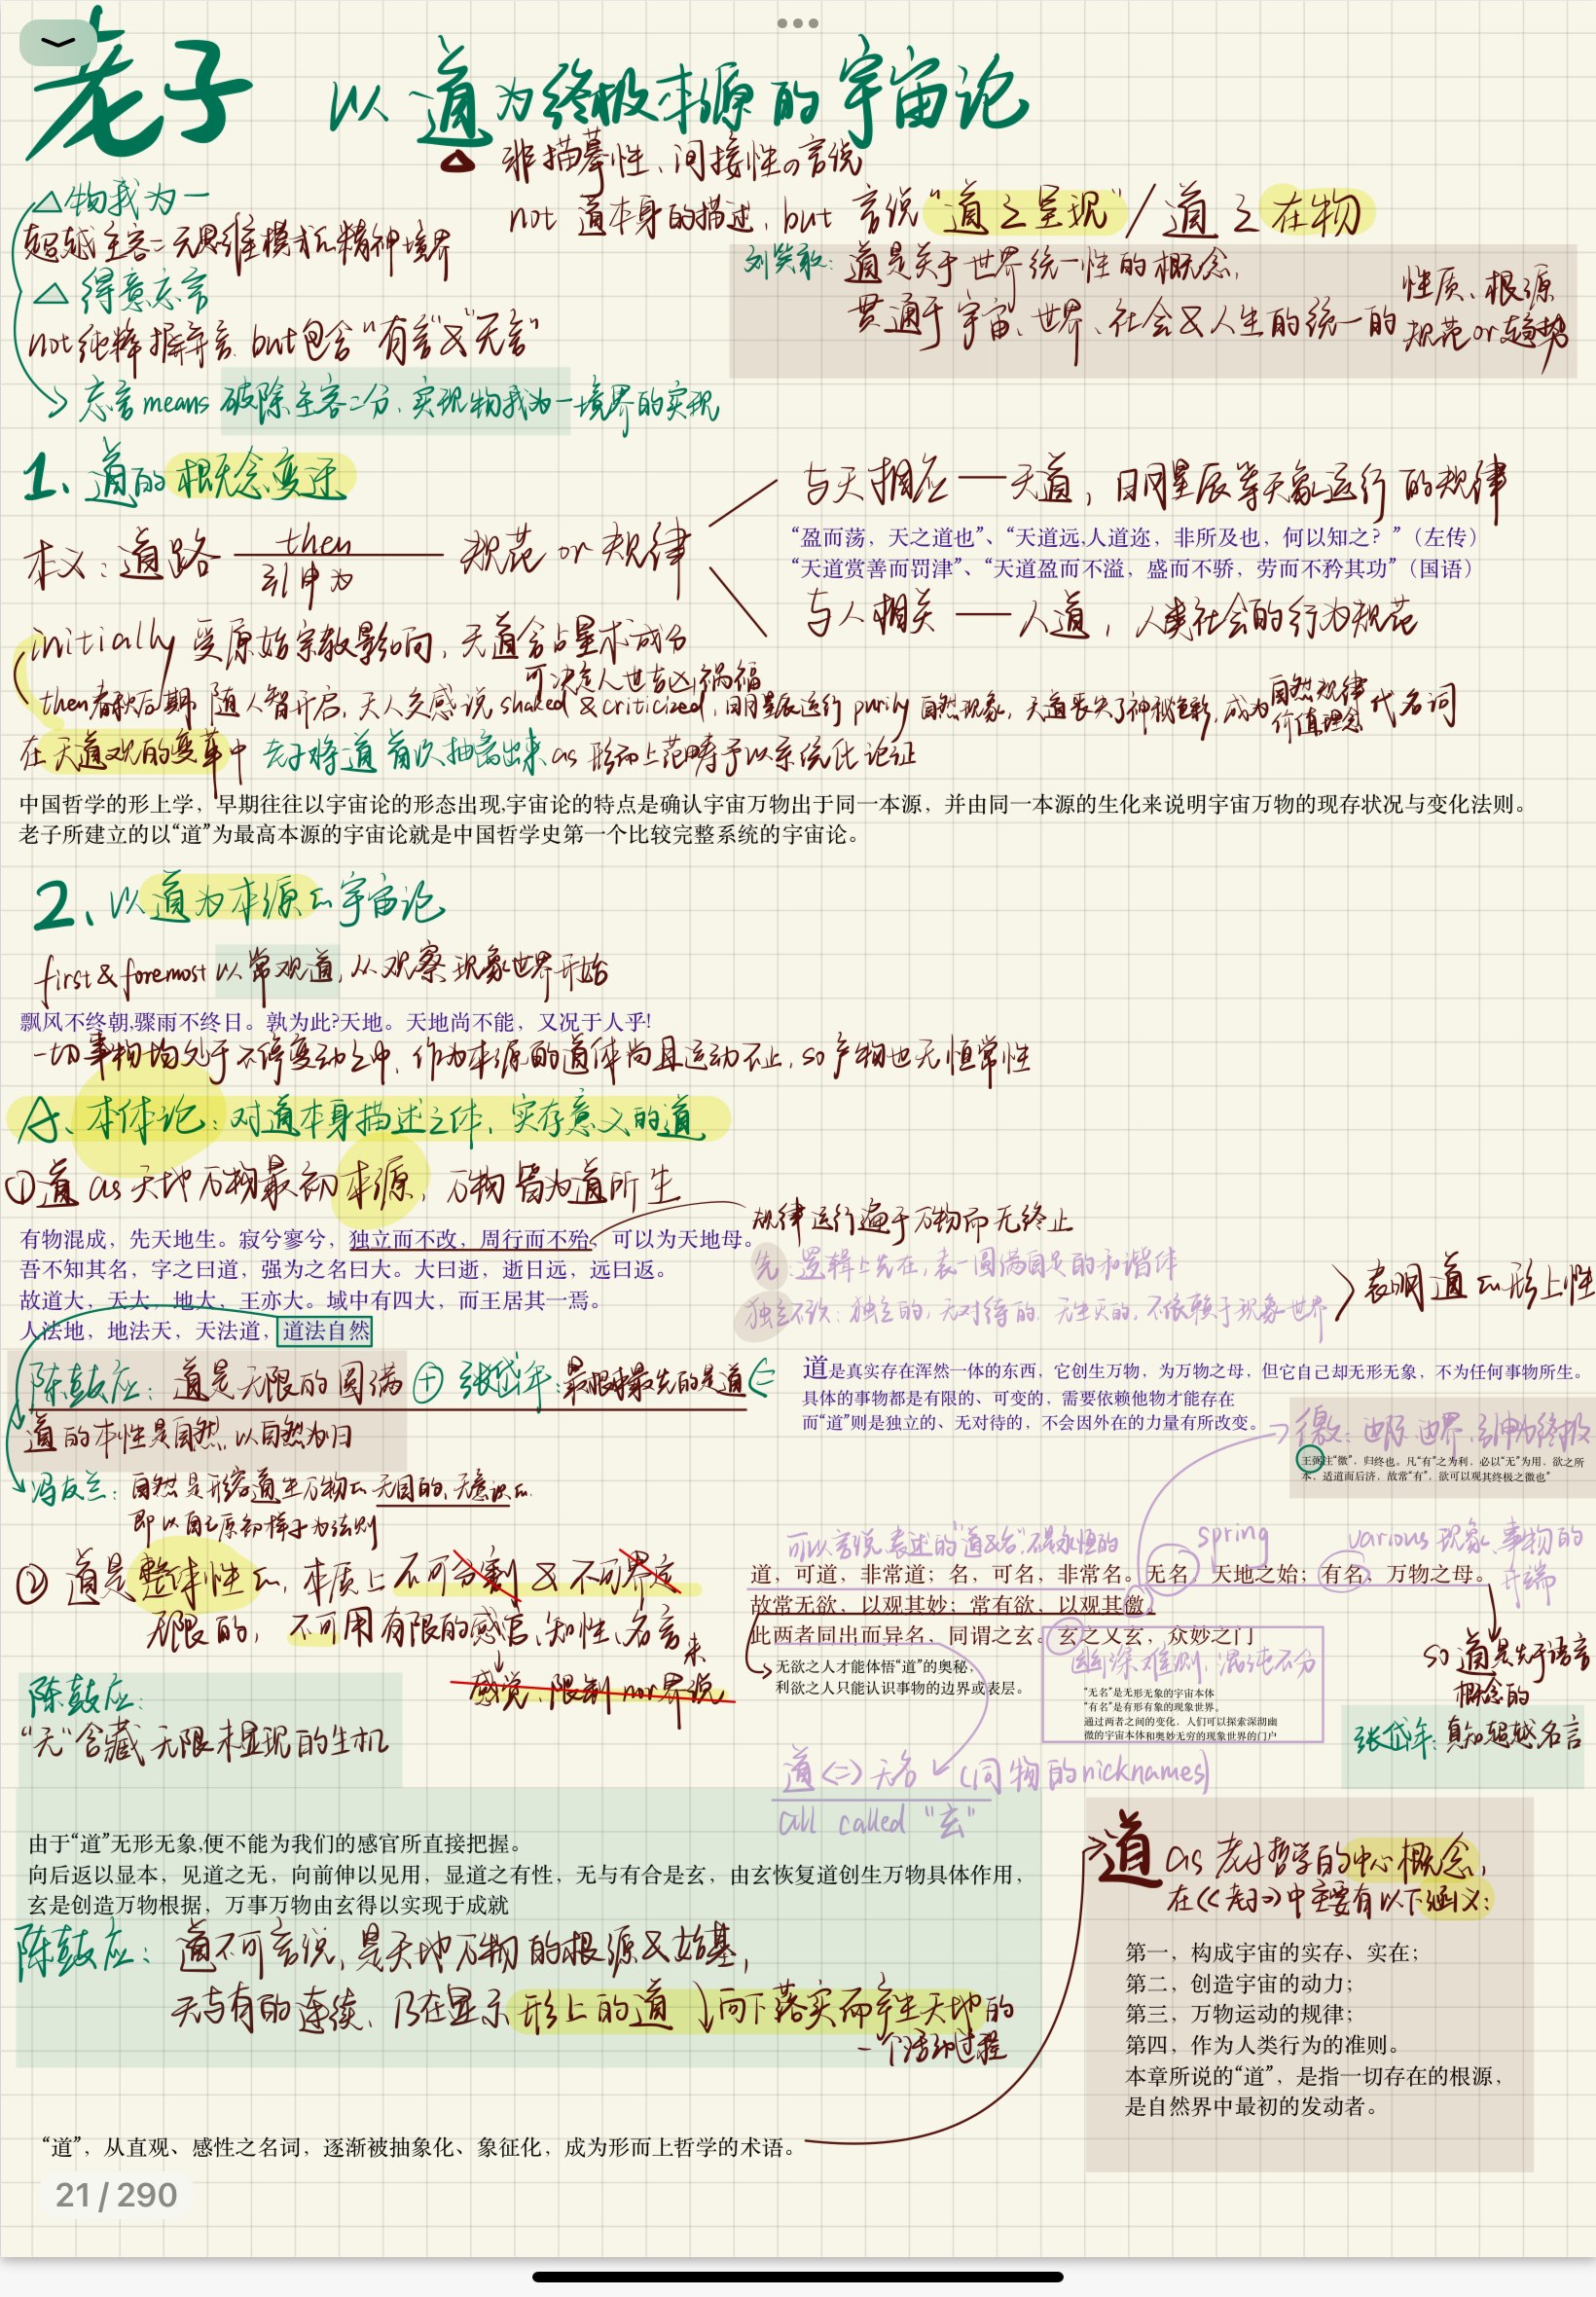 老子 以道为终极本源的宇宙论
非描摹性、间接性の言说
not 道本身的描述, but 言说“道之呈现”/ 道之在物
△物我为一
超越主客二元思维模式的精神境界
△得意忘言
not纯粹摒弃言 but包含“有言”&“无言”
→忘言means 破除主客二分、实现物我为一境界的实现
刘笑敢: 道是关于世界统一性的概念,
贯通于宇宙、世界、社会&人生的统一的性质、根源
规范or趋势
1、道的概念变迁
本义: 道路 then 引申为 规范 or 规律
与天相应——天道, 日月星辰等天象运行的规律
“盈而荡，天之道也”、“天道远,人道迩，非所及也，何以知之？”（左传）
“天道赏善而罚津”、“天道盈而不溢，盛而不骄，劳而不矜其功”（国语）
与人相关——人道, 人类社会的行为规范
initially 受原始宗教影响, 天道含占星术成分
可决定人世吉凶祸福
then春秋后期 随人智开启, 天人交感说 shaked & criticized, 日月星辰运行 purily 自然现象, 天道丧失了神秘色彩, 成为自然规律 价值理念 代名词
在天道观的变革中 老子将道首次抽离出来 as 形而上范畴予以系统化论证
中国哲学的形上学，早期往往以宇宙论的形态出现,宇宙论的特点是确认宇宙万物出于同一本源，并由同一本源的生化来说明宇宙万物的现存状况与变化法则。
老子所建立的以“道”为最高本源的宇宙论就是中国哲学史第一个比较完整系统的宇宙论。
2、以道为本源的宇宙论
first&foremost 以常观道, 从观察现象世界开始
飘风不终朝,骤雨不终日。孰为此?天地。天地尚不能，又况于人乎!
一切事物均处于不停变动之中, 作为本源的道体尚且运动不止, so产物也无恒常性
A、本体论: 对道本身描述之体、实存意义的道
①道 as 天地万物最初本源, 万物皆为道所生
有物混成，先天地生。寂兮寥兮，独立而不改，周行而不殆，可以为天地母。
吾不知其名，字之曰道，强为之名曰大。大曰逝，逝曰远，远曰返。
故道大，天大，地大，王亦大。域中有四大，而王居其一焉。
人法地，地法天，天法道，道法自然
规律运行遍于万物而无终止
先: 逻辑上先在, 表一圆满自足的和谐体
独立不改: 独立的, 无对待的, 无生灭的, 不依赖于现象世界
表明道的形上性
陈鼓应: 道是无限的圆满 ⊕ 张岱年: 最根本最先的是道
道的本性是自然, 以自然为归
冯友兰: 自然是形容道生万物的无目的、无意识的
即以自己原初样子为法则
道是真实存在浑然一体的东西，它创生万物，为万物之母，但它自己却无形无象，不为任何事物所生。
具体的事物都是有限的、可变的，需要依赖他物才能存在
而“道”则是独立的、无对待的，不会因外在的力量有所改变。
徼: 边际、边界, 引申为终极
王弼注“徼”，归终也。凡“有”之为利，必以“无”为用，欲之所
本，适道而后济，故常“有”，欲可以观其终极之徼也”
②道是整体性的, 本质上不可分割 & 不可界定
无限的, 不可用有限的感官、知性、名言来
感觉、限制 nor界说
可以言说、表述的“道&名”, 不是永恒的
spring
various 现象、事物的开端
道，可道，非常道；名，可名，非常名。无名，天地之始；有名，万物之母。
故常无欲，以观其妙；常有欲，以观其徼。
此两者同出而异名，同谓之玄。玄之又玄，众妙之门
无欲之人才能体悟“道”的奥秘，
利欲之人只能认识事物的边界或表层。
幽深难测, 混沌不分
“无名”是无形无象的宇宙本体
“有名”是有形有象的现象世界。
通过两者之间的变化，人们可以探索深湖幽
微的宇宙本体和奥妙无穷的现象世界的门户
so 道是先于语言
概念的
张岱年: 真知超越名言
陈鼓应:
“无”含藏无限未显现的生机
道<=>无名 (同物的nicknames)
all called “玄”
由于“道”无形无象,便不能为我们的感官所直接把握。
向后返以显本，见道之无，向前伸以见用，显道之有性，无与有合是玄，由玄恢复道创生万物具体作用，
玄是创造万物根据，万事万物由玄得以实现于成就
陈鼓应: 道不可言说, 是天地万物的根源&始基,
无与有的连续、乃在显示形上的道↓向下落实而产生天地的
一个活动过程
道 as 老子哲学的中心概念,
在《老子》中主要有以下涵义:
第一，构成宇宙的实存、实在；
第二，创造宇宙的动力；
第三，万物运动的规律；
第四，作为人类行为的准则。
本章所说的“道”，是指一切存在的根源，
是自然界中最初的发动者。
“道”，从直观、感性之名词，逐渐被抽象化、象征化，成为形而上哲学的术语。
21 / 290